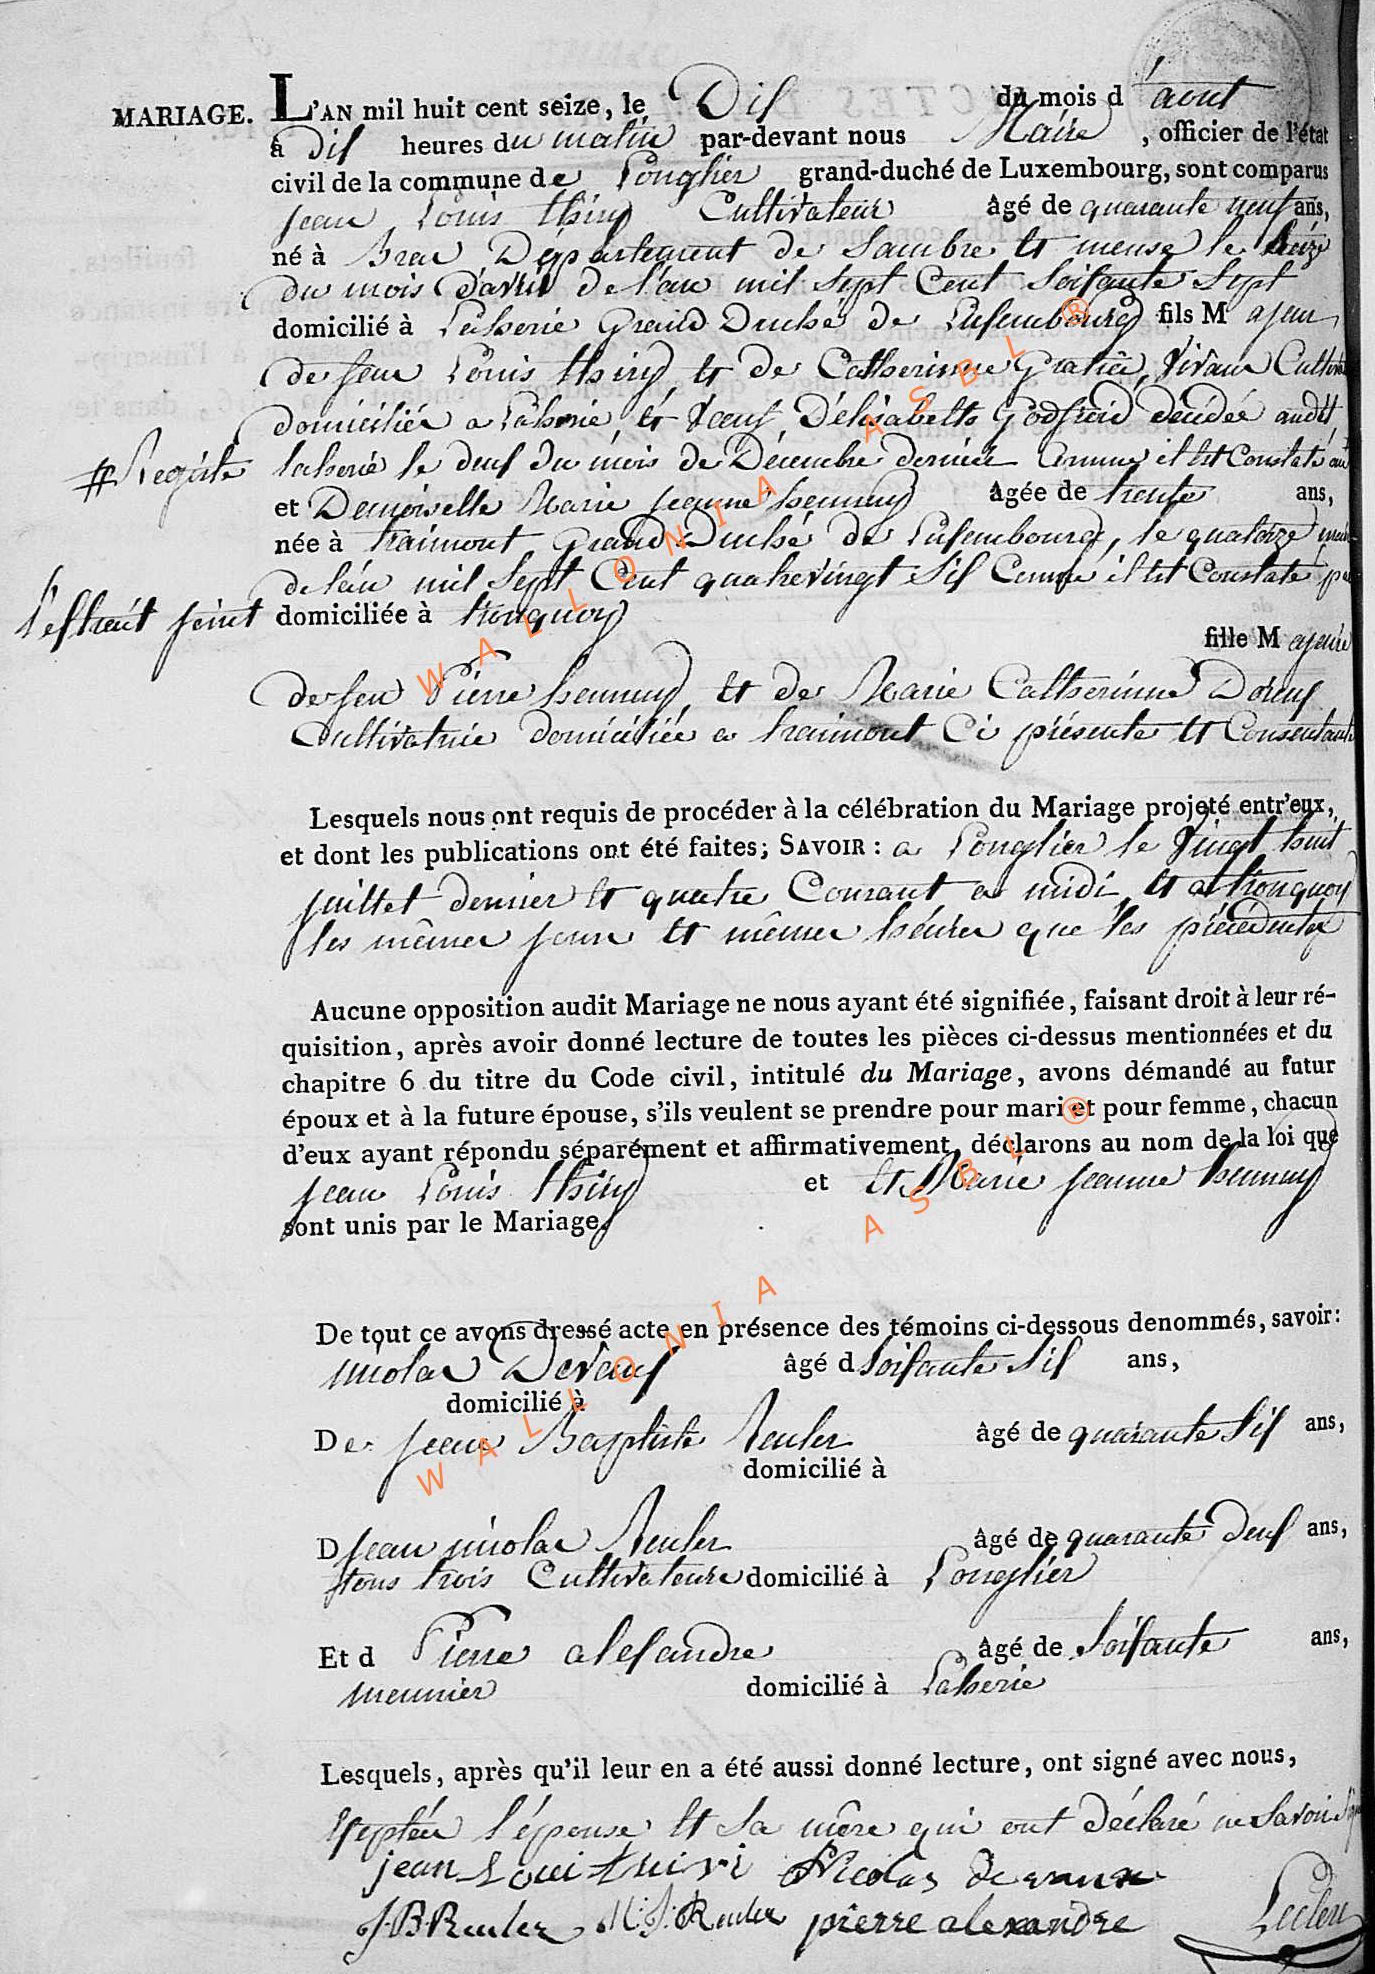 MARIAGE. L'AN mil huit cent seize, le Dix du mois d'aout
à Dix heures du matin par-devant nous Maire, officier de l'état
civil de la commune de Longlier grand-duché de Luxembourg, sont comparus
Jean Louis thiry Cultivateur âgé de quarante neuf ans,
né à Bras Département de Sambre et meuse le
du mois d'avril de l'an mil sept Cent Soixante Sept
domicilié à Laherie Grand Duché de Luxembourg fils Majeur
de feu Louis thiry et de Catherinne Gratia, Vivant
domiciliée a Laherie et Veuf D'elisabeth Godfroid décédée audit
#Registre laherie le deux du mois de Décembre dernier Comme il est Constaté au#
et Demoiselle Marie Jeanne hennuy âgée de trente ans,
née à traimont Grand Duché de Luxembourg, le quatorze
de l'an mil Sept Cent quatrevingt Six Comme il est Constaté par
l'extrait joint domiciliée à tronquoy
fille Majeure
de feu Pierre hennuy et de Marie Catherinne
Cultivatrice domiciliée a traimont Ci présente et Consentante
Lesquels nous ont requis de procéder à la célébration du Mariage projeté entr'eux,
et dont les publications ont été faites; SAVOIR : a Longlier le Vingt huit
juillet dernier et quatre Courant a midi, et a tronquoy
les mêmes jours et mêmes héures que les précédentes
Aucune opposition audit Mariage ne nous ayant été signifiée, faisant droit à leur ré-
quisition, après avoir donné lecture de toutes les pièces ci-dessus mentionnées et du
chapitre 6 du titre du Code civil, intitulé du Mariage, avons démandé au futur
époux et à la future épouse, s'ils veulent se prendre pour mari et pour femme, chacun
d'eux ayant répondu séparément et affirmativement, déclarons au nom de la loi que
Jean Louis thiry et et Marie Jeanne hennuy
sont unis par le Mariage.
De tout ce avons dressé acte en présence des témoins ci-dessous denommés, savoir :
nicolas Devaux âgé d Soixante Six ans,
domicilié à
De Jean Baptiste Reuler âgé de quarante Six ans,
domicilié à
D Jean nicolas Reuler âgé de quarante deux ans,
tous trois Cultivateurs domicilié à Longlier
Et d Pierre alexandre âgé de Soixante ans,
meunier domicilié à Laherie
Lesquels, après qu'il leur en a été aussi donné lecture, ont signé avec nous,
Exeptée l'épouse et Sa mère qui ont déclaré ne Savoir
jean Loui thiri Nicolas devaux
J.B Reuler N:J: Reuler pierre alexandre Leclere
WALLONIA ASBL ®
WALLONIA ASBL ®